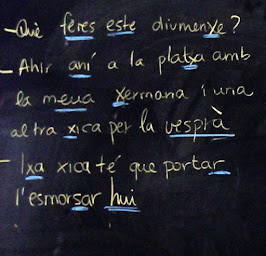 -Què feres este diumenxe?
- Ahir aní a la platxa amb
la meua xermana i una
altra xica per la vesprà
- Ixa xica té que portar
l'esmorsar hui